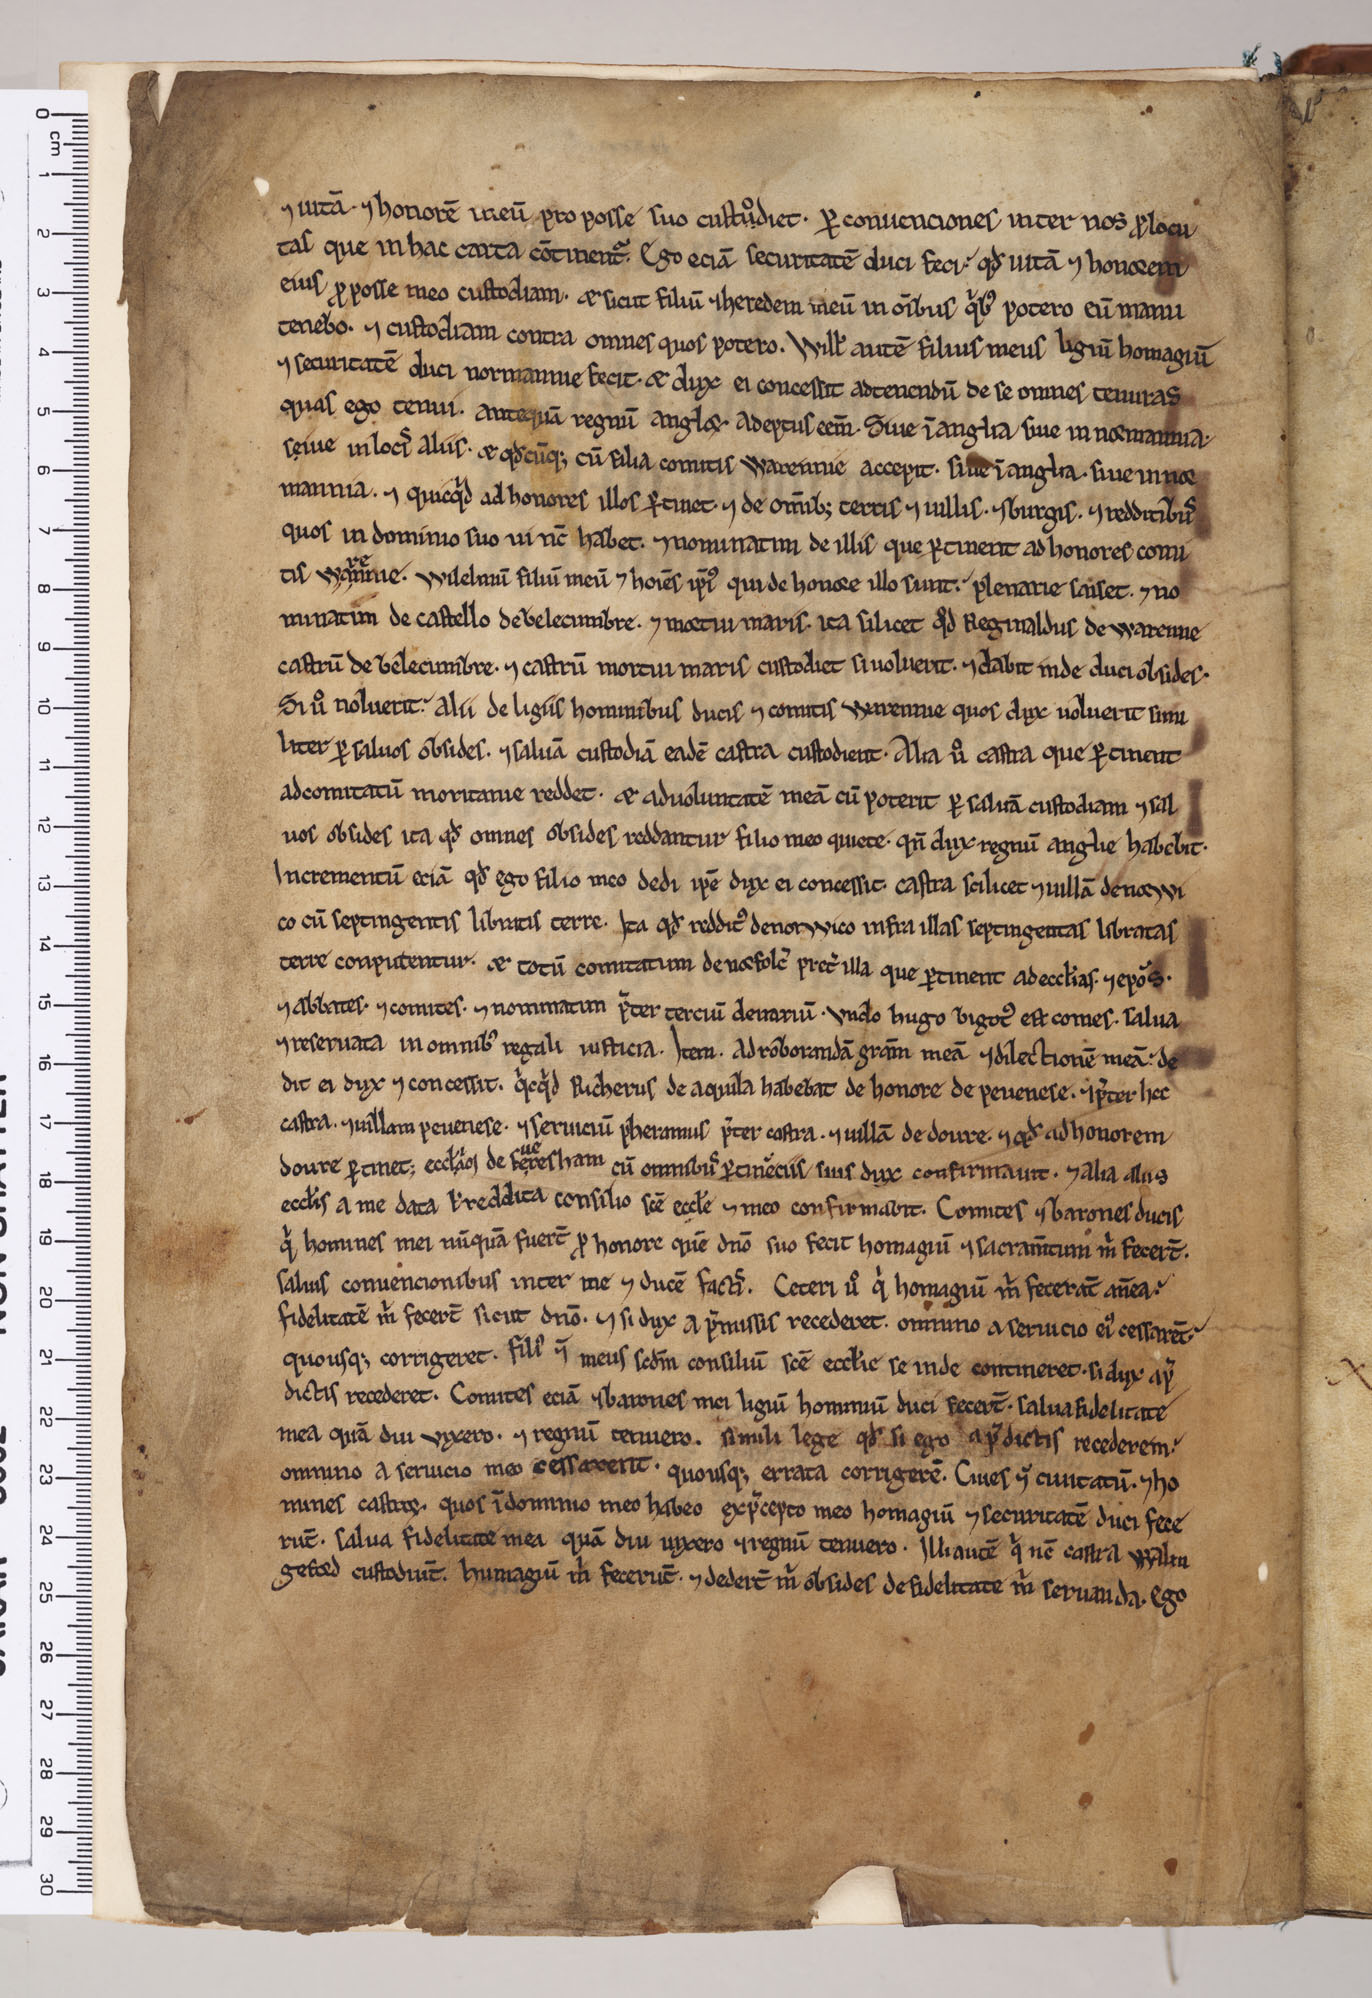 ⁊ uitā· ⁊ honorē meū pro posse suo custodiet· ꝑ conuenciones inter nos ꝓlocu
tas que in hac carta cōtinent᷑. Ego eciā securitatē duci feci· qd̄ uitā ⁊ honorem
eius ꝓ posse meo custodiam· ⁊ sicut filiū ⁊ heredem meū in oībus q̇bꝰ potero eū manu
tenebo· ⁊ custodiam contra omnes quos potero. Willꝰ autē filius meus ligiū homagiū
⁊ securitatē duci normannie fecit· ⁊ dux ei concessit ad tenendū de se omnes tenuras
quas ego tenui· antequā regnū angloꝝ adeptus eēm· Siue ī anglia siue in normannia·
seiue in locꝭ aliis· ⁊ qd̄cūq; cū filia comitis Warennie accepit· siue ī anglia· siue in nor
mannia· ⁊ quicq̇d ad honores illos ꝑtinet· ⁊ de om̄ib; terris ⁊ uillis· ⁊ burgis· ⁊ redditibꝰ
quos in dominio suo in nc̄ habet· ⁊ nominatim de illis que ꝑtinent ad honores comi
tis warennie· Wilelmū filiū meū ⁊ hoīes ip̄iꝰ qui de honore illo sunt· plenarie saiset· ⁊ no
minatim de castello de belecumbre· ⁊ mortui maris· ita silicet qd̄ Reginaldus de warenne
castrū de belecumbre· ⁊ castrū mortui maris custodiet si uoluerit· ⁊ dabit inde duci obsides·
Si u̇ noluerit· Alii de ligiis hominibus ducis ⁊ comitis warennie quos dux uoluerit simi
liter ꝑ saluos obsides· ⁊ saluā custodiā eadē castra custodient· Alia u̇ castra que ꝑtinent
ad comitatū moritanie reddet· ⁊ ad uoluntatē meā cū poterit ꝑ saluā custodiam ⁊ sal
uos obsides ita qd̄ omnes obsides reddantur filio meo quiete· qn̄ dux regnū anglie habebit·
Incrementū eciā qd̄ ego filio meo dedi ipē dux ei concessit· castra scilicet ⁊ uillā de norwi
co cū septingentis libratis terre· Ita qd̄ redditꝰ de norwico infra illas septingentas libratas
terre conputentur· ⁊ totū comitatum de norfolc̄ pret̄ illa que ꝑtinent ad eccl̄ias· ⁊ epōs·
⁊ abbates· ⁊ comites· ⁊ nominatim p̄ter terciū denariū· unde hugo bigotꝰ est comes· salua
⁊ reseruata in omnibꝰ regali iusticia· Item· Ad roborandā grām meā ⁊ dilectionē meā· de
dit ei dux ⁊ concessit· q̇cq̇d Richerus de aquila habebat de honore de peuenese· ⁊ p̄ter hec
castra· ⁊ uillam peuenese· ⁊ seruiciū pheramus p̄ter castra· ⁊ uillā de doure· ⁊ qd̄ ad honorem
doure ꝑtinet; eccl̄iā de feueresham cū omnibꝰ ꝑtinēciis suis dux confirmauit· ⁊ alia aliis
eccl̄is a me data ł reddita consilio scē eccl̄e ⁊ meo confirmabit· Comites ⁊ barones ducis
q̇ homines mei nūquā fuert̄ ꝓ honore quē dn̄o suo fecit homagiū ⁊ sacram̄tum m̄ fecert̄·
saluis conuencionibus inter me ⁊ ducē factꝭ· Ceteri u̇ q̇ homagiū m̄ fecerāt añea·
fidelitatē m̄ fecert̄ sicut dn̄o· ⁊ si dux a p̄missis recederet· omnino a seruicio eiꝰ cessarēt·
quousq; corrigeret· filiꝰ ⁊ meus scdm̄ consiliū scē eccl̄ie se inde contineret· si dux a p̄
dictis recederet· Comites eciā ⁊ barones mei ligiū hominiū duci fecert̄· salua fidelitate
mea quā diu uyxero· ⁊ regnū tenuero· simili lege qd̄ si ego a p̄dictis recederem·
omnino a seruicio meo cessarent· quousq; errata corrigerē· Ciues ⁊ ciuitatū· ⁊ ho
mines castroꝝ· quos ī dominio meo habeo ex p̄cepto meo homagiū ⁊ securitatē duci fece
rūt· salua fidelitate mea quā diu uyxero ⁊ regnū tenuero· Illi autē q̇ nc̄ castra walin
geford custodiūt· humagiū m̄ fecerūt· ⁊ dedert̄ m̄ obsides de fidelitate m̄ seruanda· Ego